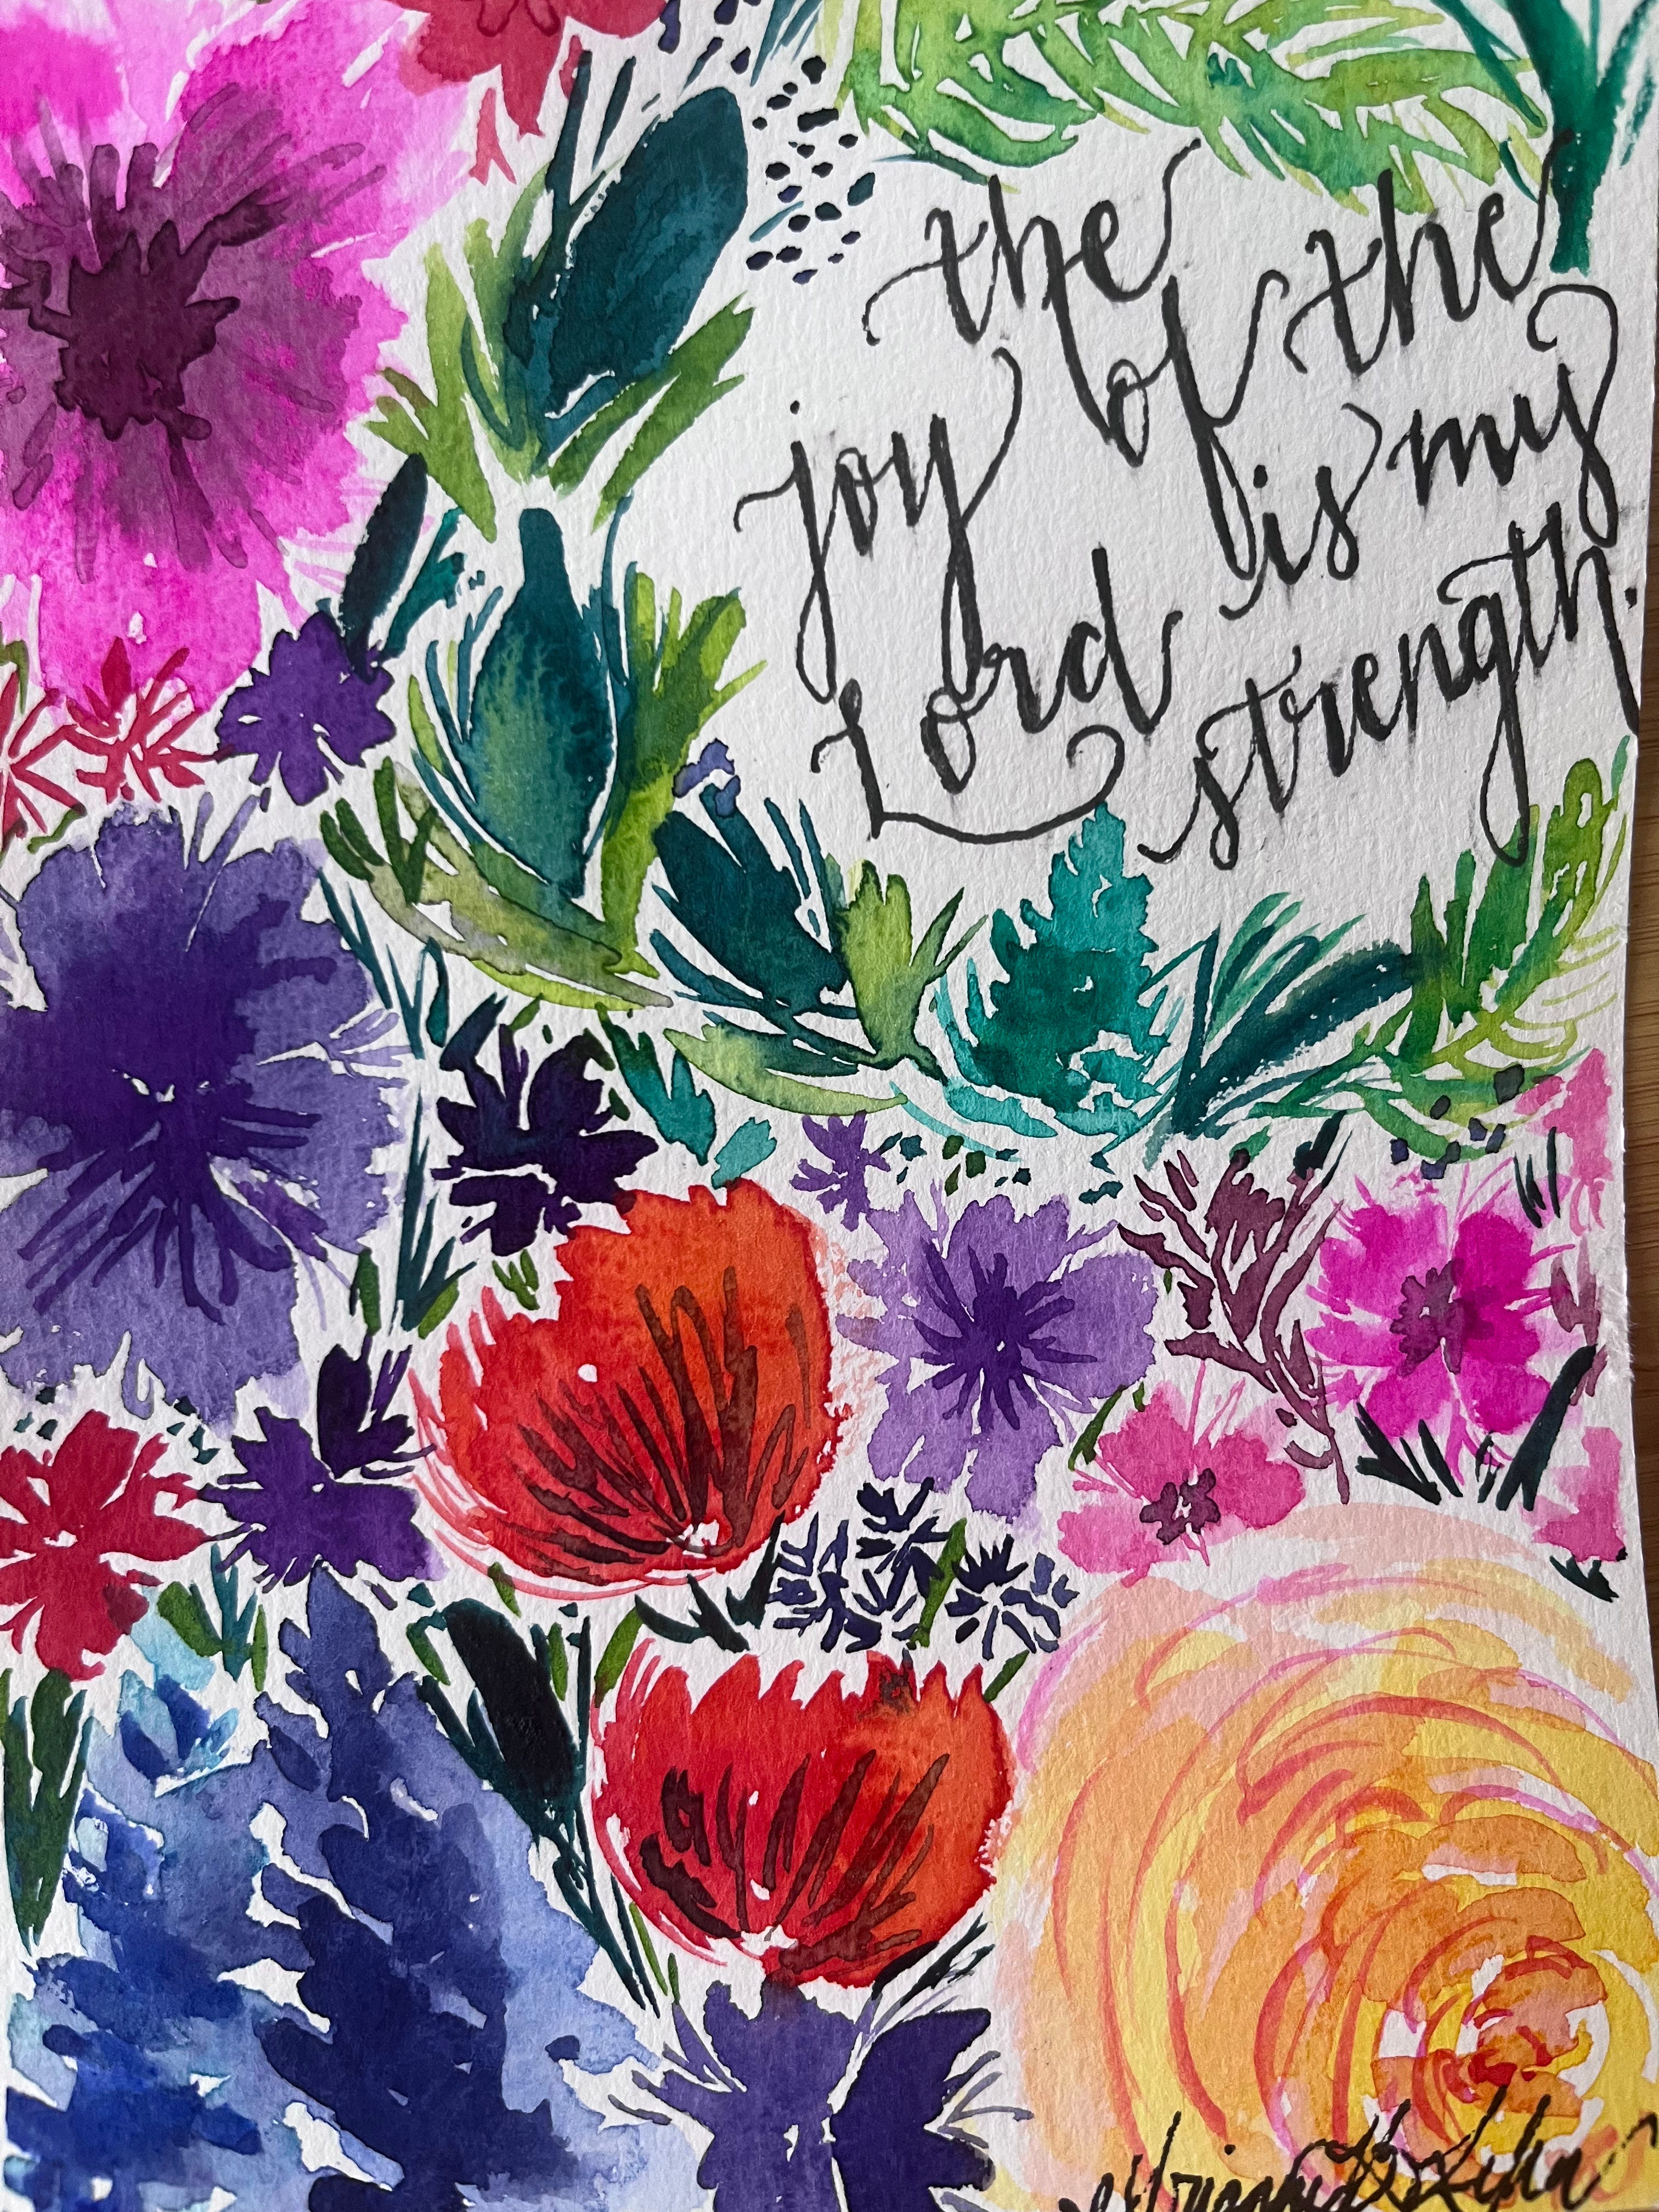 the
joy of the
Lord is my
strength.